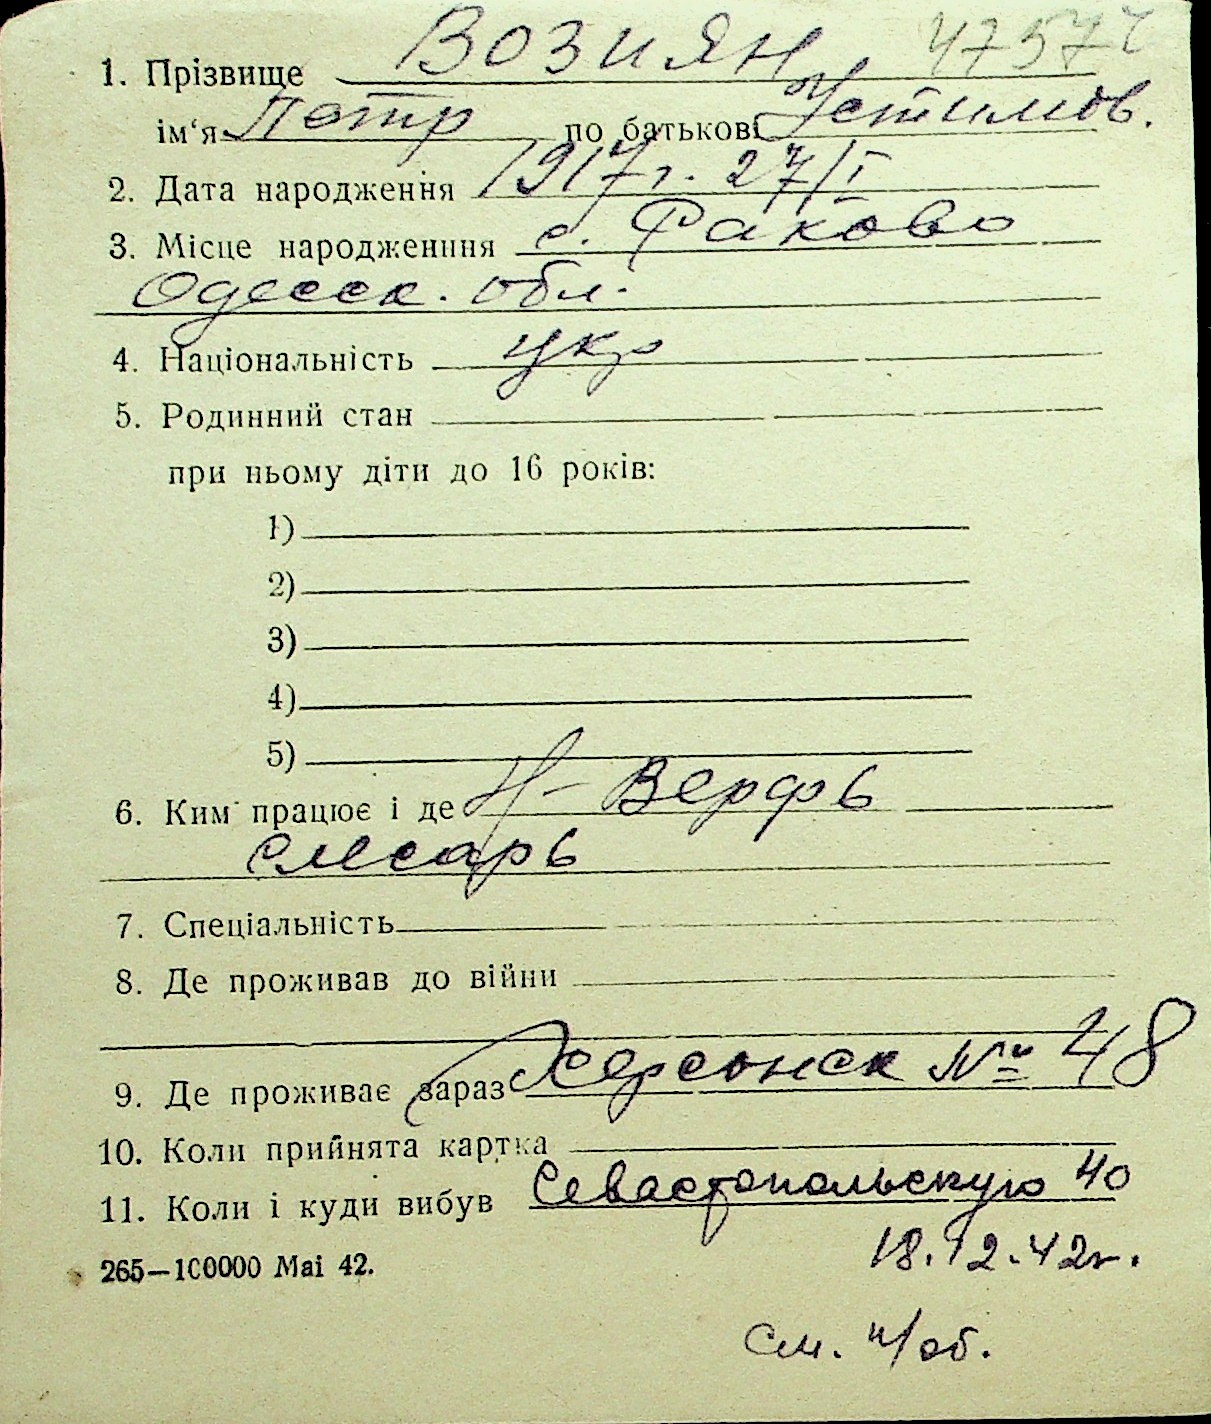 1. Прізвище ВОЗИЯН
ім‘я Петр по батькові Устимов.
2. Дата народження 1917 г. 27/I
3. Місце народженння с. Раково
Одесск. обл.
4. Національність укр
5. Родинний стан
при ньому діти до 16 років:
1)
2)
3)
4)
5)
6. Ким працює і де Н-Верфь
слесарь
7. Спеціальність
8. Де проживав до війни
9. Де проживає зараз Херсонск № 48
10. Коли прийнята картка
11. Коли і куди вибув Севастопольскую 40
18.12.42г.
265—100000 Mai 42.
см. н/об.